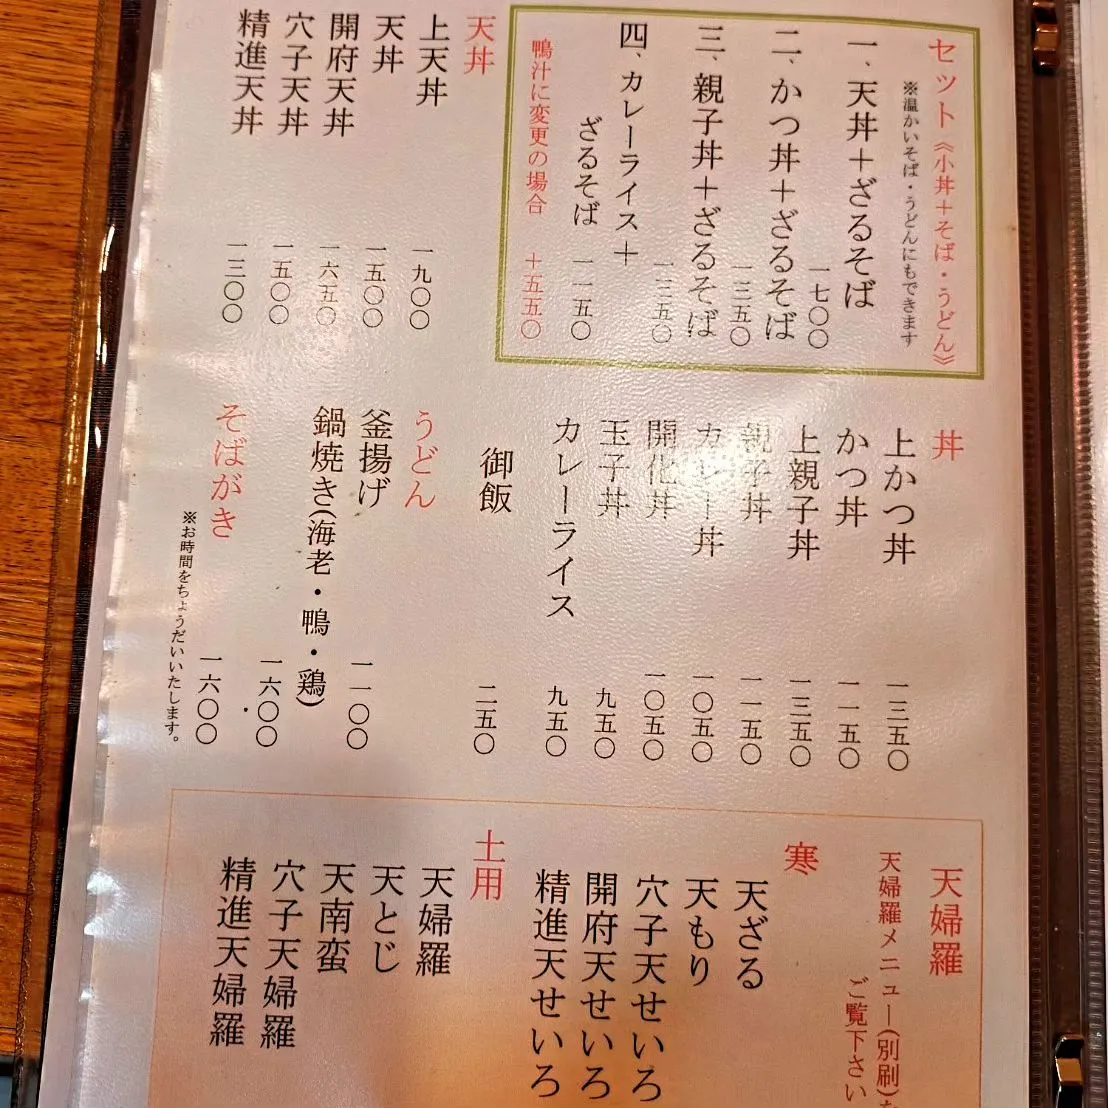 セット《小丼+そば・うどん》
※温かいそば・うどんにもできます
一、天丼+ざるそば
一七〇〇
二、かつ丼+ざるそば
一三五〇
三、親子丼+ざるそば
一三五〇
四、カレーライス+
ざるそば
一一五〇
鴨汁に変更の場合
+五五〇
天丼
上天丼
一九〇〇
天丼
一五〇〇
開府天丼
一六五〇
穴子天丼
一五〇〇
精進天丼
一三〇〇
丼
上かつ丼
一三五〇
かつ丼
一一五〇
上親子丼
一三五〇
親子丼
一一五〇
カレー丼
一〇五〇
開化丼
一〇五〇
玉子丼
九五〇
カレーライス
九五〇
御飯
二五〇
うどん
釜揚げ
一一〇〇
鍋焼き(海老・鴨・鶏)
一六〇〇
そばがき
一六〇〇
※お時間をちょうだいいたします。
天婦羅
天婦羅メニュー(別刷)を
ご覧下さい
寒
天ざる
天もり
穴子天せいろ
開府天せいろ
精進天せいろ
土用
天婦羅
天とじ
天南蛮
穴子天婦羅
精進天婦羅